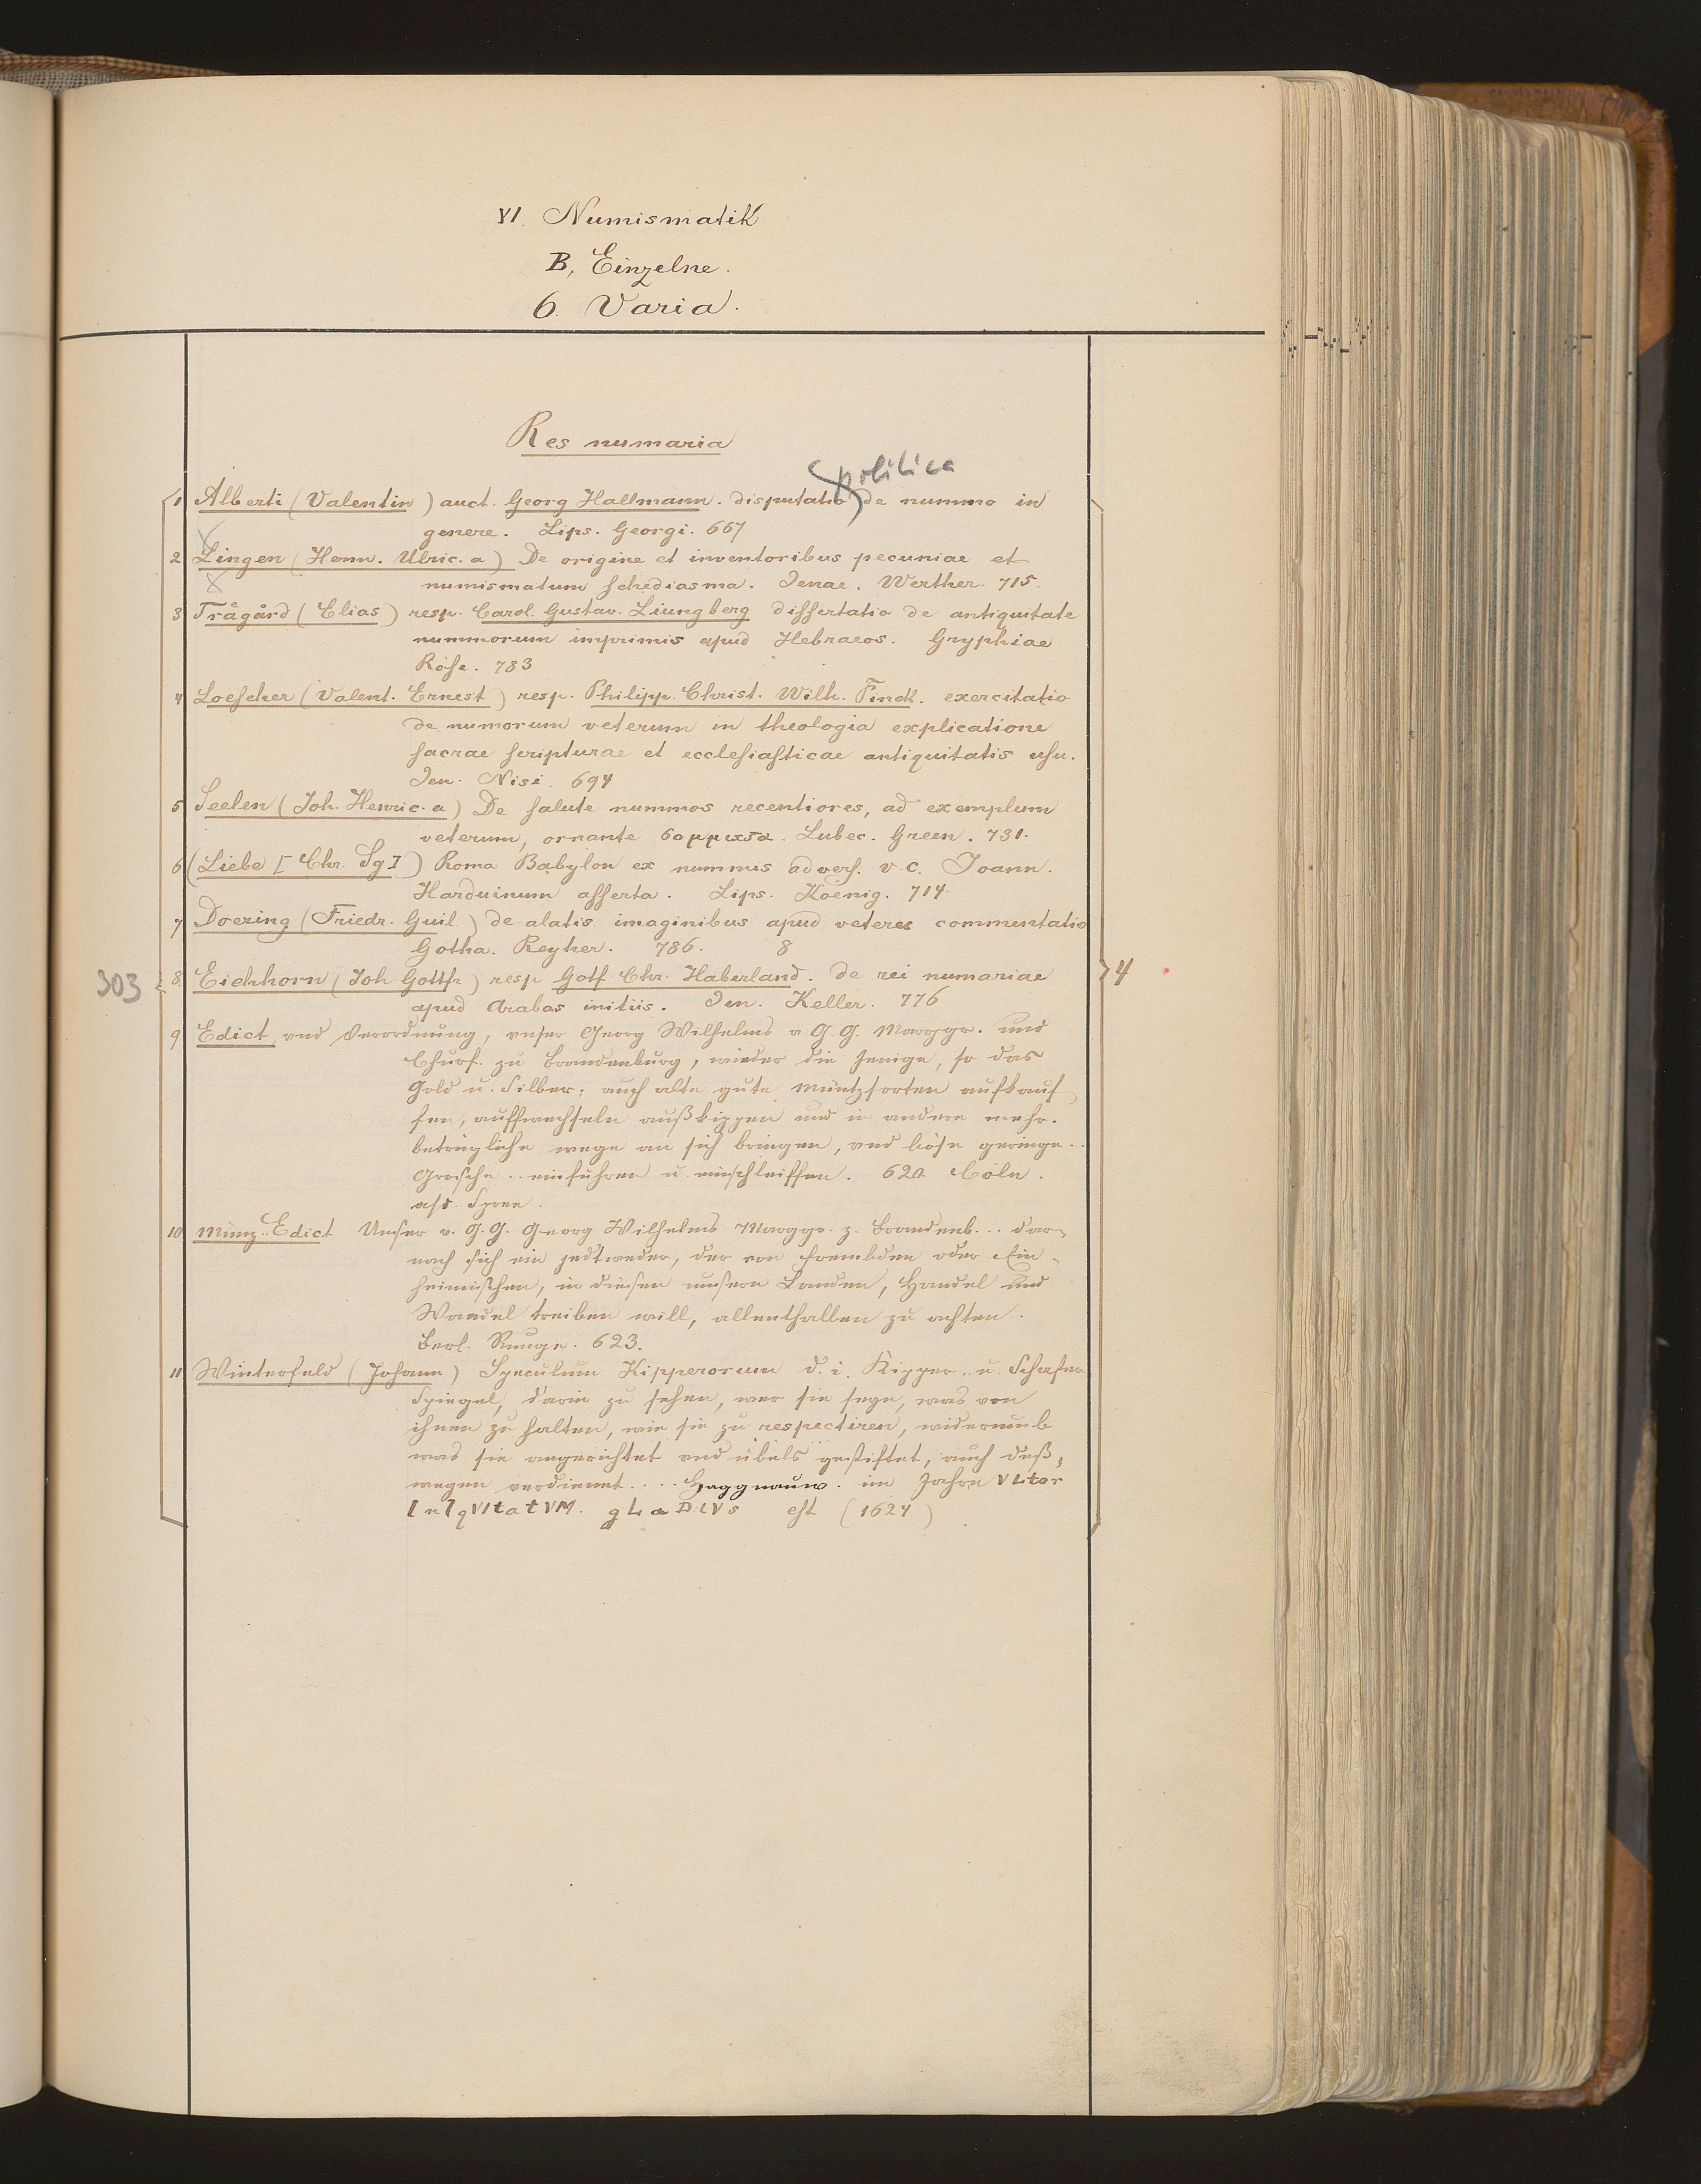 VI. Numismatik
B, Einzelne.
6. Varia.
Res numaria
politica
1 Alberti (Valentin) auct. Georg Hallmann. disputatio de nummo in
genere. Lips. Georgi. 667
2 Lingen (Henn. Ulric. a) De origine et inventoribus pecuniae et
numismatum schediasma. Jenae. Werther. 715.
3 Trågård (Elias) resp. Carol. Gustav. Liungberg dissertatio de antiquitate
nummorum imprimis apud Hebraeos. Gryphiae
Röse. 783
4 Loescher (Valent. Ernest) resp. Philipp. Christ. Wilh. Finck. exercitatio
de numorum veterum in theologia explicatione
sacrae scripturae et ecclesiasticae antiquitatis usu.
Jen. Nisi. 694
5 Seelen (Joh. Henric. a) De salute nummos recentiores, ad exemplum
veterum, ornante Lubec. Green. 731.
6 (Liebe [Chr. Sg]) Roma Babylon ex nummis advers. v. c. Joann.
Harduinum asserta. Lips. Koenig. 714.
7 Doering (Friedr. Guil) de alatis imaginibus apud veteres commentatio
Gotha. Reyher. 786. 8
303
8. Eichhorn (Joh Gottfr) resp Gotf Chr. Haberland. de rei numariae
apud Arabas initiis. Jen. Keller. 776
4
9 Edict vnd Verordnung, vnser Georg Wilhelms v. G. G. Marggr. und
Churf. zu Brandenburg, wieder die jenige, so das
Gold u. Silber; auch alte gute müntzsorten aufkauf
fen, auffwechseln außkippen und in andere mehr.
betrügliche wege an sich bringen, vnd böse geringe..
Grosche .. einführen u einschleiffen. Cöln.
a/d. Spree.
10 Münz-Edict Unser v. G. G. Georg Wilhelms Marggr. z. Brandenb... dar¬
nach sich ein jedtweder, der von frembden oder Ein¬
heimischen, in diesen unsern Landen, Handel und
Wandel treiben will, allenthalben zu achten.
Berl. Runge. 623.
11 Winterfeld (Johann) Speculum Kipperorum d. i. Kipper.. u.
Spiegel, darin zu sehen, wer sie seyn, was von
ihnen zu halten, wie sie zu respectiren, widerumb
was sie angerichtet vnd übels gestiftet, auch deß,
wegen verdienet.... Haggnauw. im Jahre VLtor
InIqVItatVM. gLaDIVs est (1624)